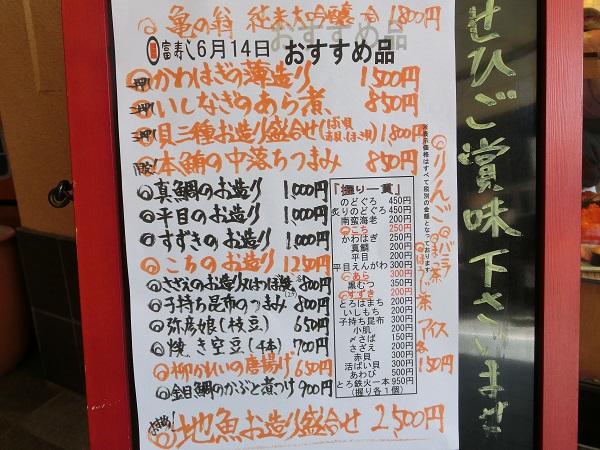 亀の翁 純米大吟醸 合 1,800円
富寿し 6月14日 おすすめ品
かわはぎの薄造り 1,500円
いしなぎのあら煮 850円
貝三種お造り盛合せ 1,800円
本鮪の中落ちつまみ 850円
真鯛のお造り 1,000円
平目のお造り 1,000円
すずきのお造り 1,000円
こちのお造り 1,250円
さざえのお造り又はつぼ焼 800円
子持ち昆布のつまみ 800円
弥彦娘(枝豆) 650円
焼き空豆(4本) 700円
柳かれいの唐揚げ 650円
金目鯛のかぶと煮つけ 900円
地魚お造り盛合せ 2,500円
『握り一貫』
のどぐろ 450円
炙りのどぐろ 450円
南蛮海老 200円
こち 250円
かわはぎ 250円
真鯛 200円
平目 200円
平目えんがわ 300円
あら 300円
黒むつ 350円
すずき 200円
とろはまち 200円
いしもち 200円
子持ち昆布 300円
小肌 200円
〆さば 150円
さざえ 200円
赤貝 300円
活ばい貝 300円
あわび 500円
とろ鉄火一本 950円
(握り各1個)
※表示価格はすべて税別の金額となっております
りんご
バニラ
ほうじ茶
アイス
各150円
ぜひご賞味下さいませ